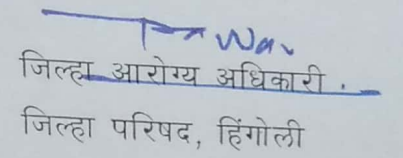 जिल्हा आरोग्य अधिकारी .
जिल्हा परिषद, हिंगोली